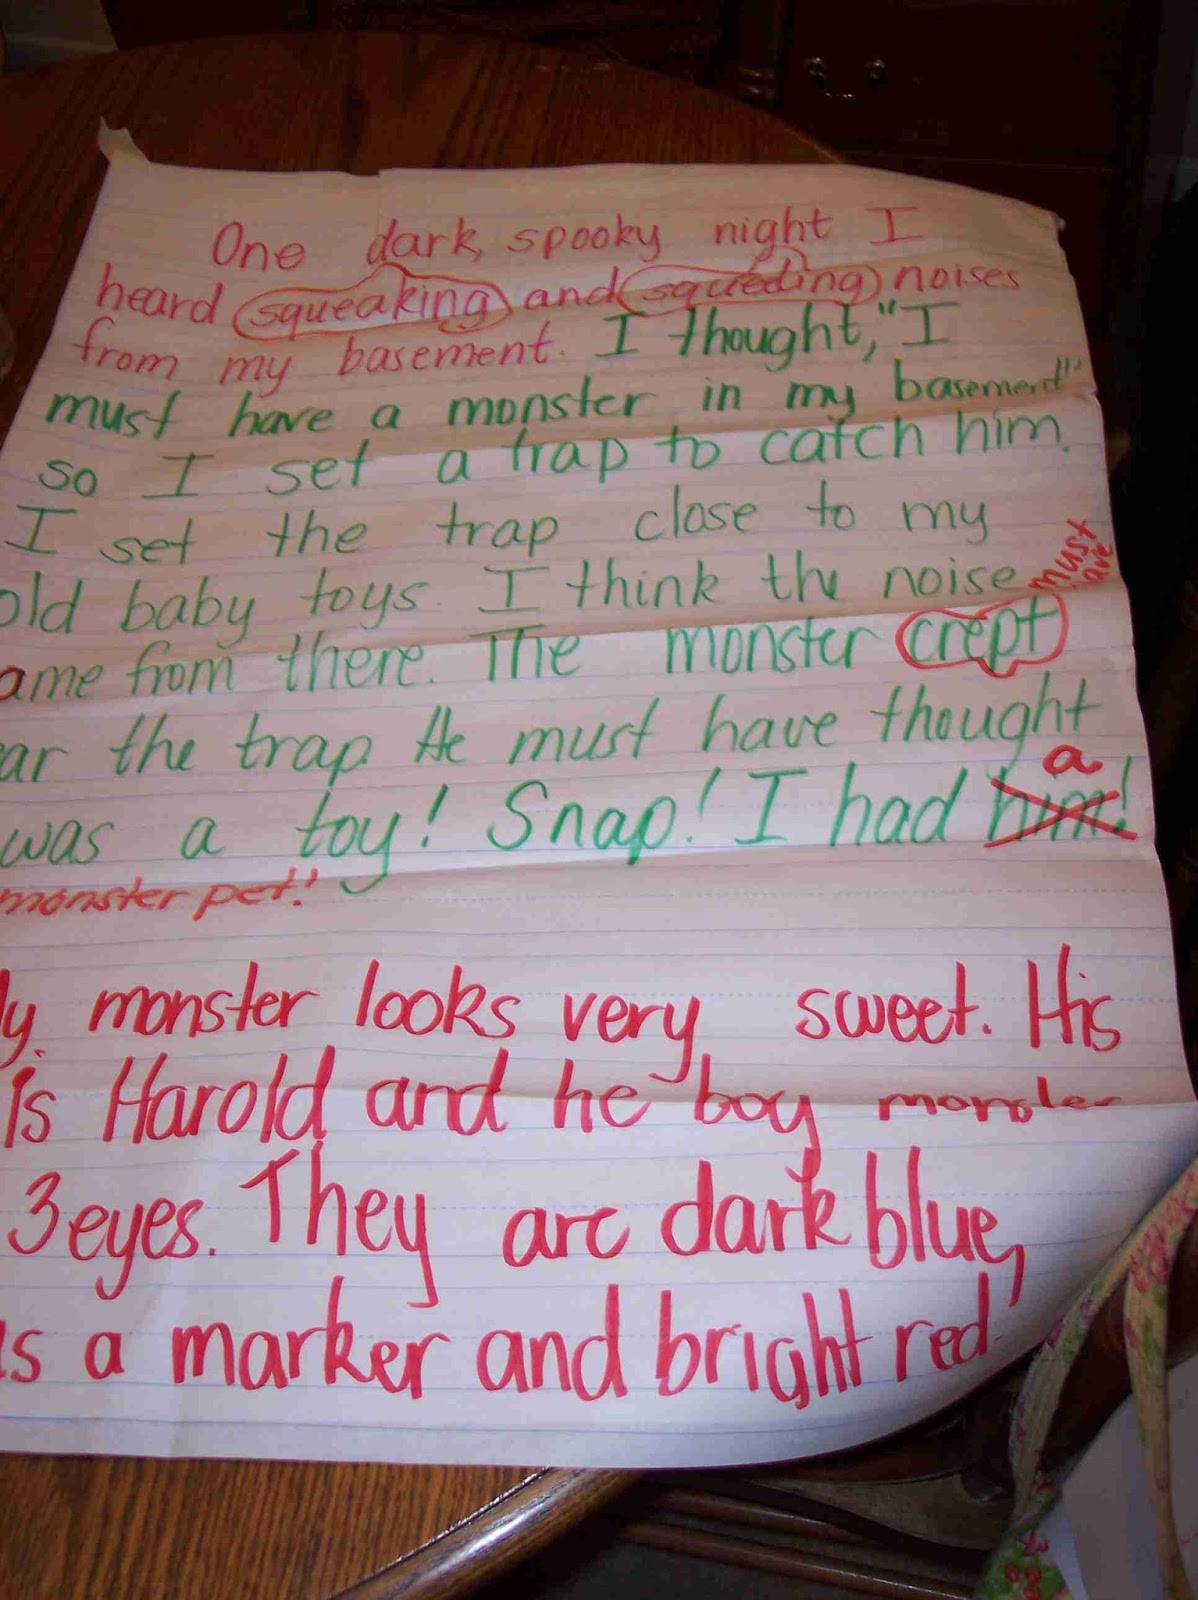 One dark, spooky night I
heard squeaking and squeding noises
from my basement. I thought, "I
must have a monster in my basement"
so I set a trap to catch him.
I set the trap close to my
old baby toys. I think the noise must
ame from there. The monster crept
ar the trap. He must have thought
was a toy! Snap! I had a him!
monster pet!
ly monster looks very sweet. His
is Harold and he boy monster
3 eyes. They are dark blue,
as a marker and bright red.